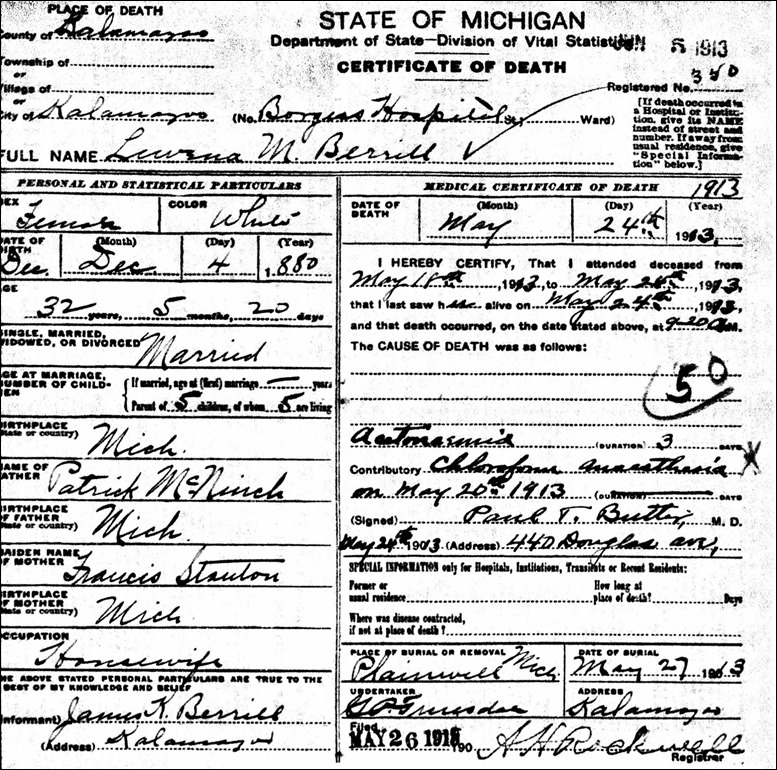 PLACE OF DEATH
County of Kalamazoo
Township of
or
Village of
or
City of Kalamazoo
STATE OF MICHIGAN
Department of State—Division of Vital Statistics
JUN 5 1913
CERTIFICATE OF DEATH
Registered No. 350
(No. Borgess Hospital St., Ward)
[If death occurred in
a Hospital or Institu-
tion, give its NAME
instead of street and
number. If away from
usual residence, give
"Special Informa-
tion" below.]
FULL NAME Luwena M. Berrill
PERSONAL AND STATISTICAL PARTICULARS
SEX Female
COLOR White
DATE OF BIRTH
Dec. (Month) Dec (Day) 4 (Year) 1880
AGE
32 years, 5 months, 20 days
SINGLE, MARRIED,
WIDOWED, OR DIVORCED Married
AGE AT MARRIAGE,
NUMBER OF CHILD-
REN
If married, age at (first) marriage — years
Parent of 5 children, of whom 5 are living
BIRTHPLACE
(State or country) Mich.
NAME OF
FATHER Patrick McNinch
BIRTHPLACE
OF FATHER
(State or country) Mich.
MAIDEN NAME
OF MOTHER Francis Stanton
BIRTHPLACE
OF MOTHER
(State or country) Mich
OCCUPATION
Housewife
THE ABOVE STATED PERSONAL PARTICULARS ARE TRUE TO THE
BEST OF MY KNOWLEDGE AND BELIEF
(Informant) James K. Berrill
(Address) Kalamazoo
MEDICAL CERTIFICATE OF DEATH 1913
DATE OF
DEATH
(Month) May (Day) 24th (Year) 1913.
I HEREBY CERTIFY, That I attended deceased from
May 18th, 1913, to May 24th, 1913,
that I last saw her alive on May 24th, 1913,
and that death occurred, on the date stated above, at 9-20 AM.
The CAUSE OF DEATH was as follows:
50
Acetonaemia (DURATION) 3 DAYS
Contributory Chloroform anaesthesia X
on May 20th 1913 (DURATION) DAYS
(Signed) Paul T. Butler, M. D.
May 24th 1913 (Address) 440 Douglas ave,
SPECIAL INFORMATION only for Hospitals, Institutions, Transients or Recent Residents:
Former or
usual residence
How long at
place of death? Days
Where was disease contracted,
if not at place of death?
PLACE OF BURIAL OR REMOVAL
Plainwell Mich.
DATE OF BURIAL
May 27 1913
UNDERTAKER
G.P. Truesdale
ADDRESS
Kalamazoo
Filed
MAY 26 1913 190
A H Rockwell
Registrar